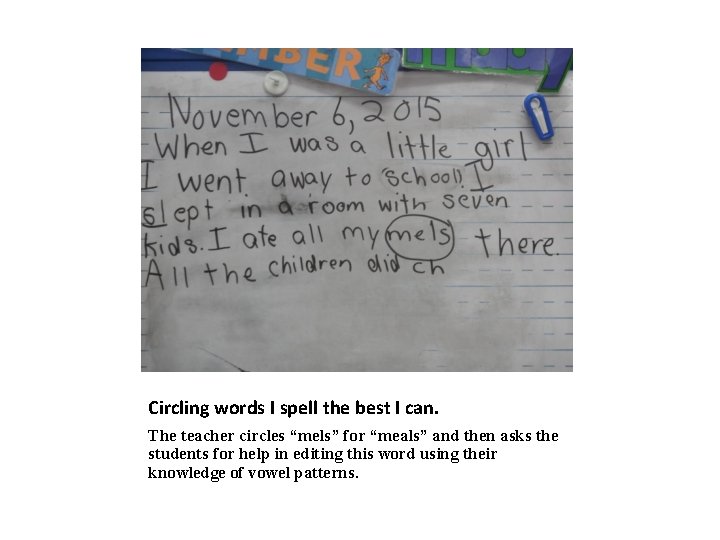 MBER
day
November 6, 2015
When I was a little girl
I went away to school. I
slept in a room with seven
kids. I ate all my mels there.
All the children did ch
Circling words I spell the best I can.
The teacher circles “mels” for “meals” and then asks the
students for help in editing this word using their
knowledge of vowel patterns.